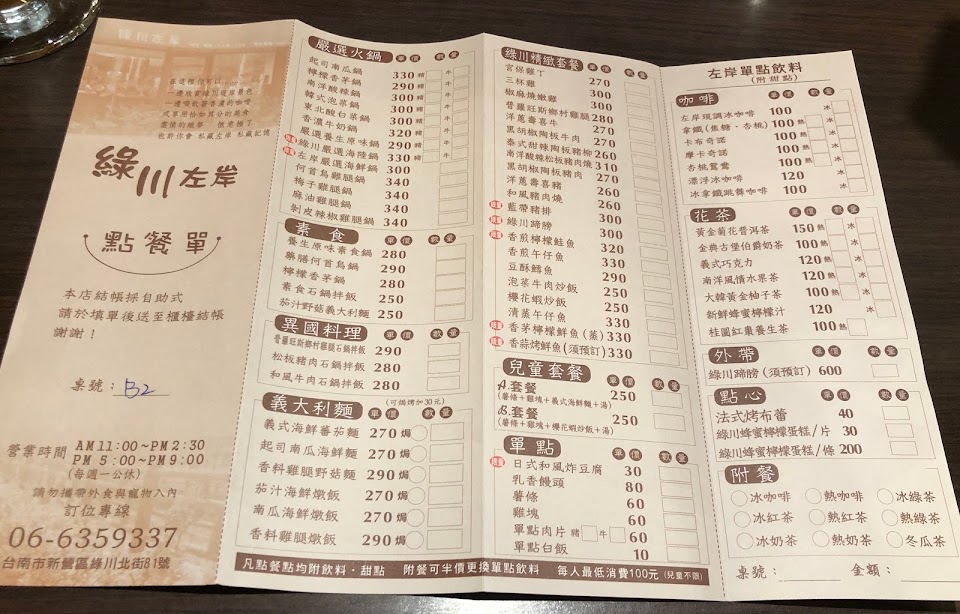 在這裡你可以
一邊欣賞綠川堤岸景色
一邊啜飲著香濃的咖啡
或享用恰如其分的美食
私藏左岸 私藏記憶
綠川左岸
點餐單
本店結帳採自助式
請於填單後送至櫃檯結帳
謝謝！
桌號：B2
營業時間 AM 11:00~PM 2:30
PM 5:00~PM 9:00
(每週一公休)
請勿攜帶外食與寵物入內
訂位專線
06-6359337
台南市新營區綠川北街81號
嚴選火鍋 單價 數量
起司南瓜鍋 330 豬 牛
檸檬香茅鍋 290 豬 牛
南洋酸辣鍋 300 豬 牛
韓式泡菜鍋 300 豬 牛
東北酸白菜鍋 300 豬 牛
香濃牛奶鍋 320 豬 牛
嚴選養生原味鍋 290 豬 牛
綠川嚴選海陸鍋 330 豬 牛
左岸嚴選海鮮鍋 300
何首烏雞腿鍋 340
梅子雞腿鍋 340
麻油雞腿鍋 340
剝皮辣椒雞腿鍋 340
素食 單價 數量
養生原味素食鍋 280
藥膳何首烏鍋 290
檸檬香茅鍋 290
素食石鍋拌飯 250
茄汁野菇義大利麵 250
異國料理 單價 數量
普羅旺斯鄉村雞腿石鍋拌飯 290
松板豬肉石鍋拌飯 280
和風牛肉石鍋拌飯 280
義大利麵 (可焗烤加30元) 單價 數量
義式海鮮蕃茄麵 270 焗
起司南瓜海鮮麵 270 焗
香料雞腿野菇麵 290 焗
茄汁海鮮燉飯 270 焗
南瓜海鮮燉飯 270 焗
香料雞腿燉飯 290 焗
綠川精緻套餐 單價 數量
宮保雞丁 270
三杯雞 300
椒麻燒嫩雞 300
普羅旺斯鄉村雞腿 280
洋蔥壽喜牛 270
黑胡椒陶板牛肉 270
泰式甜辣陶板豬柳 260
南洋酸辣松板豬肉燒 310
黑胡椒陶板豬肉 270
洋蔥壽喜豬 260
和風豬肉燒 260
藍帶豬排 300
綠川蹄膀 300
香煎檸檬鮭魚 330
香煎午仔魚 330
豆酥鱈魚 330
泡菜牛肉炒飯 250
櫻花蝦炒飯 250
清蒸午仔魚 330
香茅檸檬鮮魚(蒸) 330
香蒜烤鮮魚(須預訂) 330
兒童套餐 單價 數量
A.套餐 250
(薯條+雞塊+義式海鮮麵+湯)
B.套餐 250
(薯條+雞塊+櫻花蝦炒飯+湯)
單點 單價 數量
日式和風炸豆腐 30
乳香饅頭 80
薯條 60
雞塊 60
單點肉片 豬 牛 60
單點白飯 10
左岸單點飲料
(附甜點)
咖啡 單價 數量
左岸現調冰咖啡 100 冰
拿鐵(焦糖·杏桃) 100 熱 冰
卡布奇諾 100
摩卡奇諾 100
杏桃鴛鴦 100
漂浮冰咖啡 120 冰
冰拿鐵跳舞咖啡 100 冰
花茶 單價 數量
黃金菊花普洱茶 150 熱
金典古堡伯爵奶茶 100 熱 冰
義式巧克力 120
南洋風情水果茶 120
大韓黃金柚子茶 100 熱 冰
新鮮蜂蜜檸檬汁 120 冰
桂圓紅棗養生茶 100 熱
外帶 單價 數量
綠川蹄膀(須預訂) 600
點心 單價 數量
法式烤布蕾 40
綠川蜂蜜檸檬蛋糕/片 30
綠川蜂蜜檸檬蛋糕/條 200
附餐
冰咖啡 熱咖啡 冰綠茶
冰紅茶 熱紅茶 熱綠茶
冰奶茶 熱奶茶 冬瓜茶
桌號： 金額：
凡點餐點均附飲料·甜點 附餐可半價更換單點飲料 每人最低消費100元 (兒童不限)